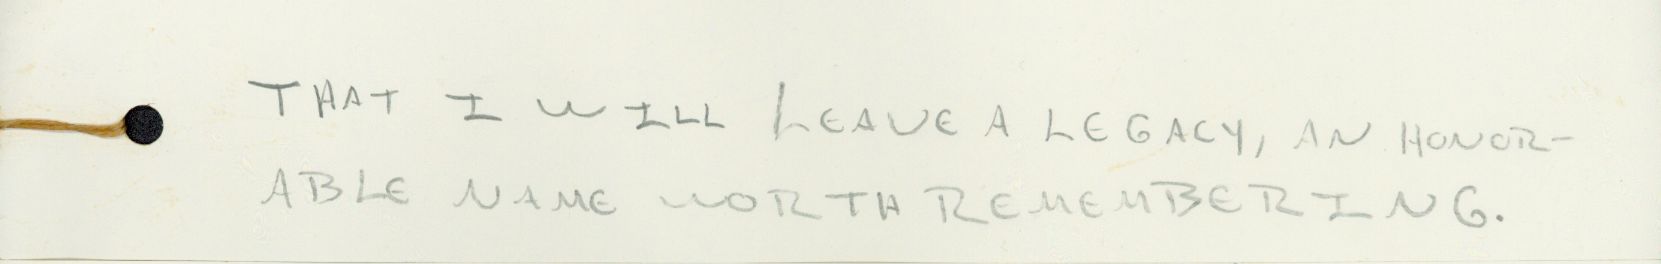 THAT I WILL LEAVE A LEGACY, AN HONOR-
ABLE NAME WORTH REMEMBERING.